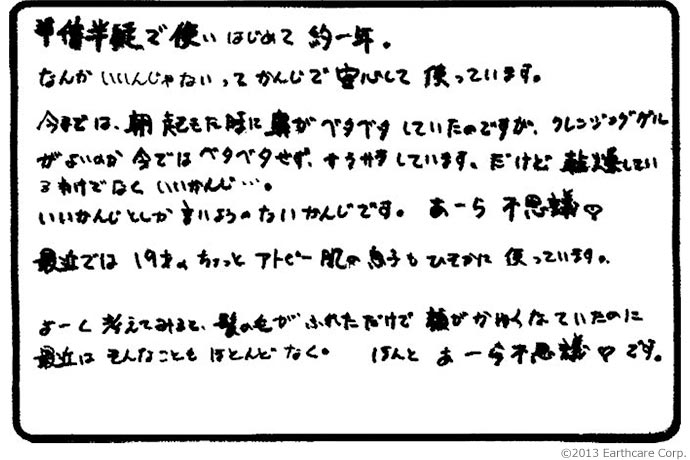 半信半疑で使いはじめて 約一年。
なんか いいんじゃないって かんじで 安心して 使っています。
今までは、朝 起きた時に 鼻が ベタベタ していたのですが、クレンジングゲル
がよいのか 今では ベタベタせず、サラサラ しています、だけど 乾燥してい
るわけでなく いいかんじ…。
いいかんじとしか 言いようのないかんじです。 あーら 不思議♡
最近では 19才の ちょっと アトピー肌の 息子も ひそかに 使っています。
よーく 考えてみると、髪の毛が ふれただけで 顔が かゆくなっていたのに
最近は そんなことも ほとんど なく。 ほんと あーら不思議♡です。
©2013 Earthcare Corp.